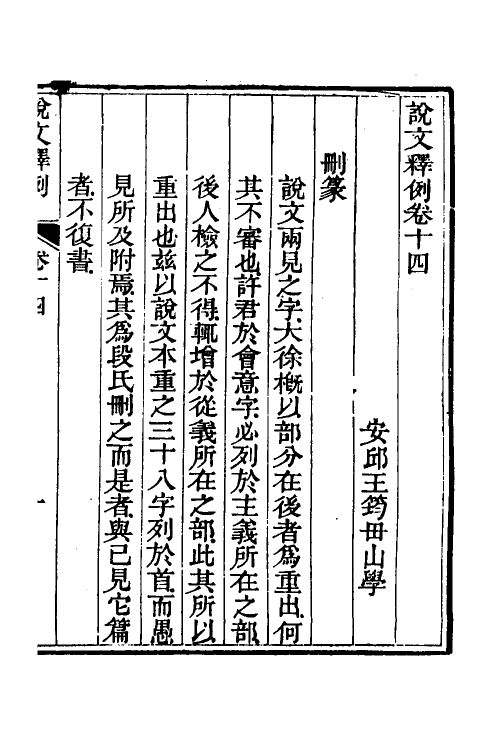 說文釋例卷十四
安邱王筠毌山學
刪篆
說文兩見之字大徐概以部分在後者爲重出何
其不審也許君於會意字必列於主義所在之部
後人檢之不得輒增於從義所在之部此其所以
重出也茲以說文本重之三十八字列於首而愚
見所及附焉其爲段氏刪之而是者與已見它篇
者不復書
說文釋例 卷十四 一